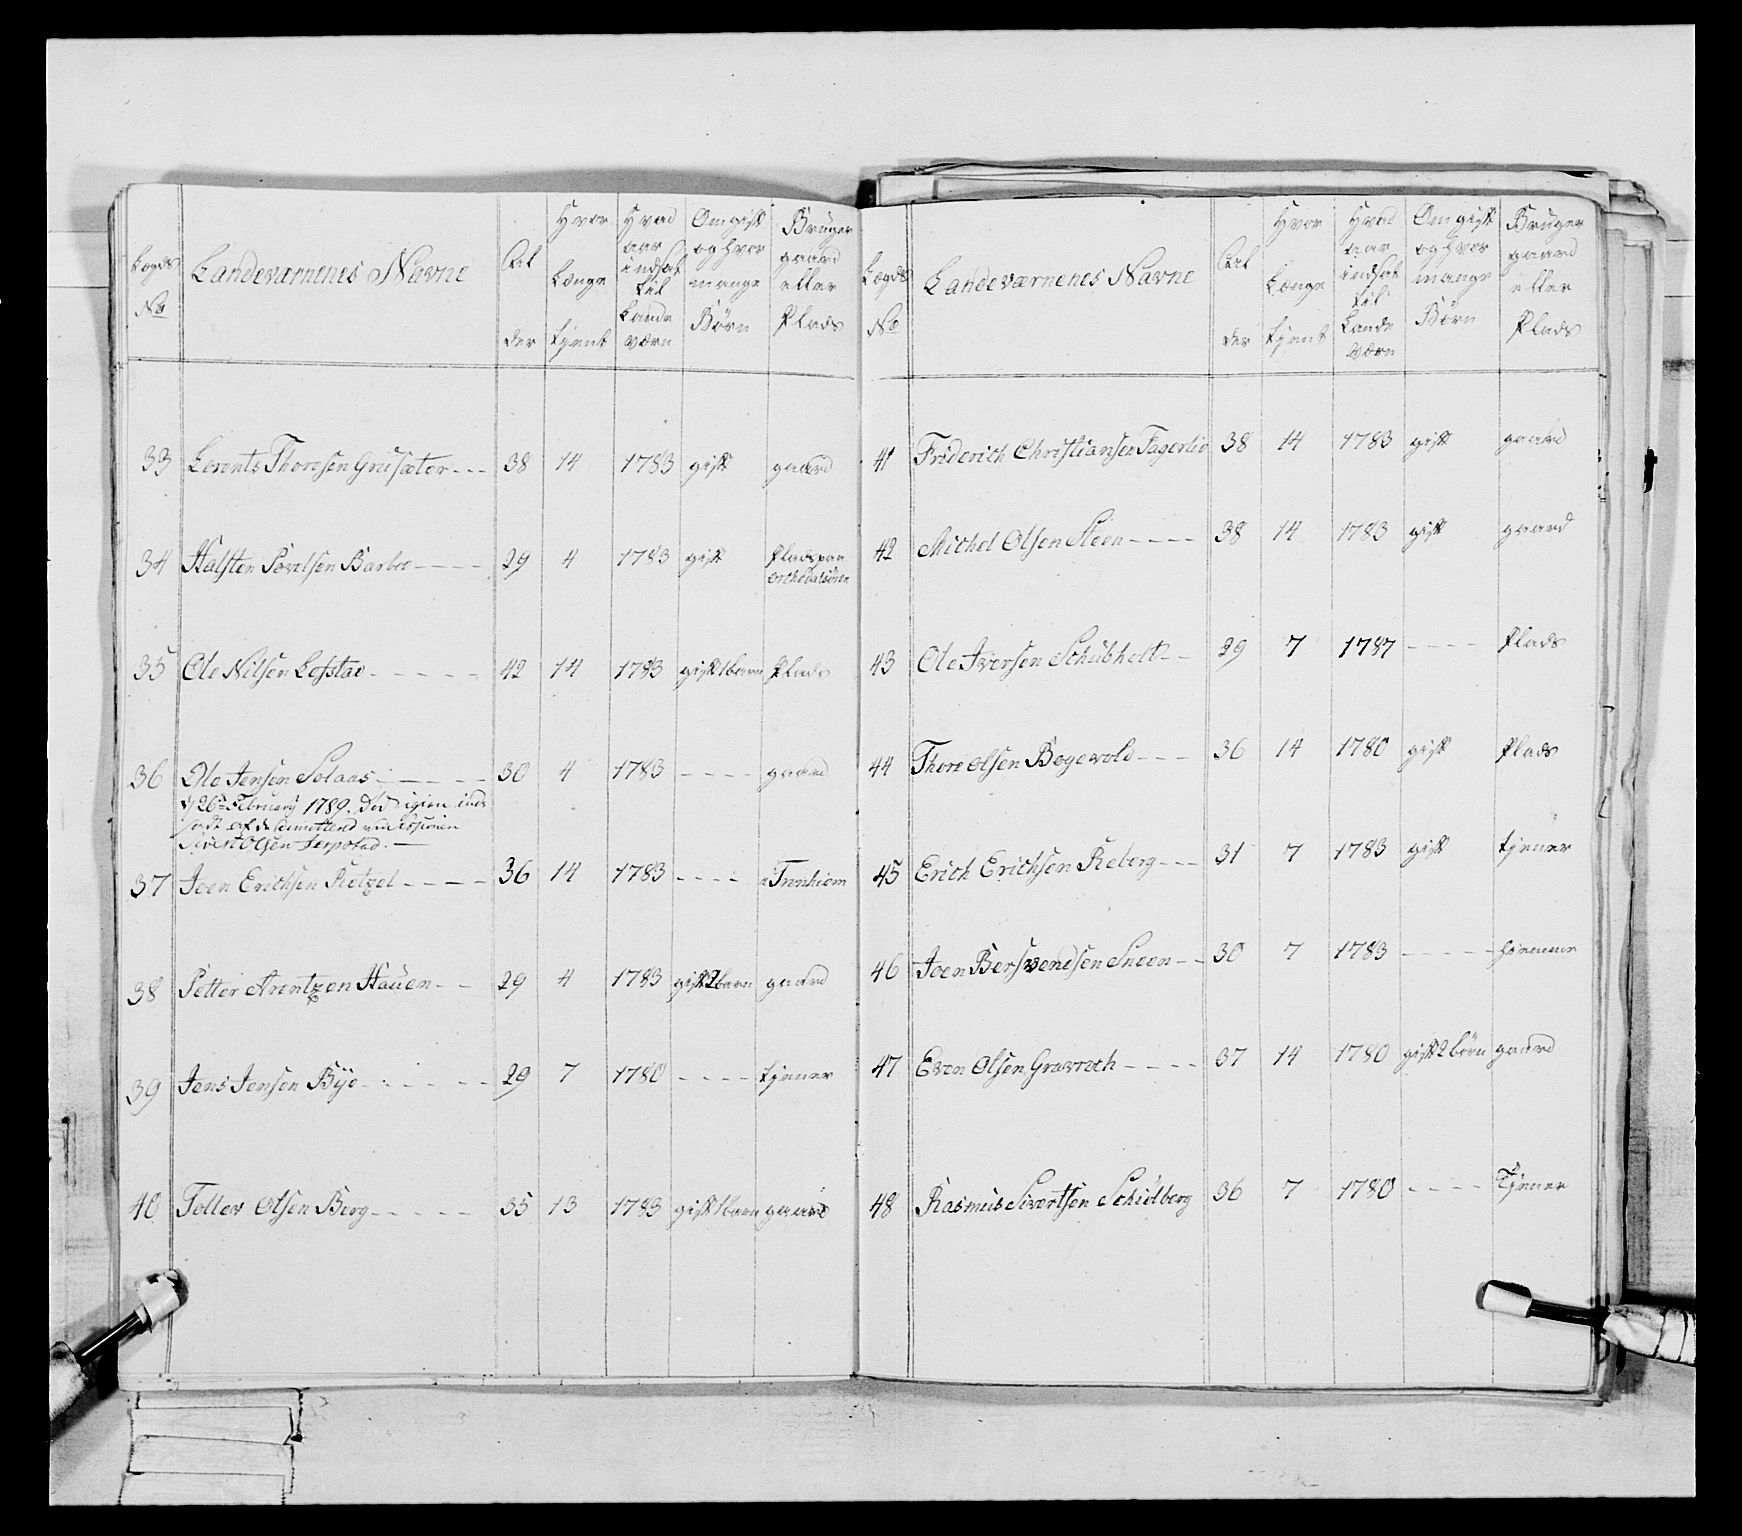 Lægds No | Landeværnenes Navne | Alder | Hvor Længe tjent | Hvad aar indsat til Lande værn | Om gift og hvor mange Börn | Bruger gaard eller Plads
33 Lorents Thoresen Grusæter --- 38 14 1783 gift gaard
34 Halsten Povelsen Barboe ---- 29 4 1783 gift Plads paa
35 Ole Nilsen Lofstad ----- 42 14 1783 gift 1 barn Plads
36 Ole Jensen Solaas ----- 30 4 1783 ---- gaard
d 26de February 1789. død igien ind
sadt af
Sivert Olsen
37 Joen Erichsen Rotzel ---- 36 14 1783 ---- i Tronhiem
38 Petter Arentzen Hauen -- 29 4 1783 gift 2 barn gaard
39 Jens Jensen Bye ------ 29 7 1780 ---- tjener
40 Tollev Olsen Berg ----- 35 13 1783 gift 1 barn gaard
Lægds No | Landeværnenes Navne | Alder | Hvor Længe tjent | Hvad aar indsat til Lande værn | Om gift og hvor mange Börn | Bruger gaard eller Plads
41 Friderich Christiansen Fagerlie 38 14 1783 gift gaard
42 Michel Olsen Steen ---- 38 14 1783 gift gaard
43 Ole Iversen Schubholt -- 29 7 1787 ---- Plads
44 Thore Olsen Bogevold --- 36 14 1780 gift Plads
45 Erich Erichsen Reberg --- 31 7 1783 gift tjener
46 Joen Bersvendsen Sneen -- 30 7 1783 ----
47 Even Olsen Gravraach ---- 37 14 1780 gift 2 börn gaard
48 Rasmus Sivertsen Schiölberg 36 7 1780 ---- Tjener